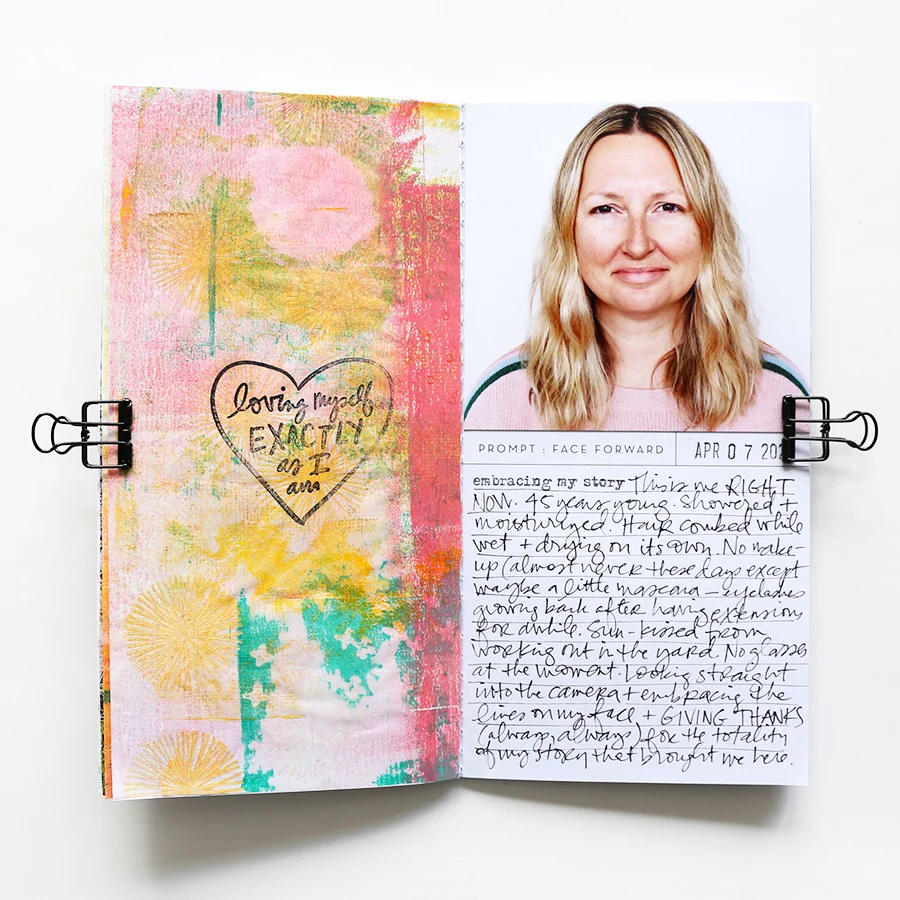 loving myself
EXACTLY
as I
am
PROMPT : FACE FORWARD
APR 07 202
embracing my story This is me RIGHT
NOW. 45 years young. Showered +
moisturized. Hair combed while
wet + drying on its own. No make-
up (almost never these days except
maybe a little mascara - eyelashes
growing back after having extensions
for awhile. Sun-kissed from
working out in the yard. No glasses
at the moment. Looking straight
into the camera + embracing the
lines on my face + GIVING THANKS
(always, always) for the totality
of my story that brought me here.